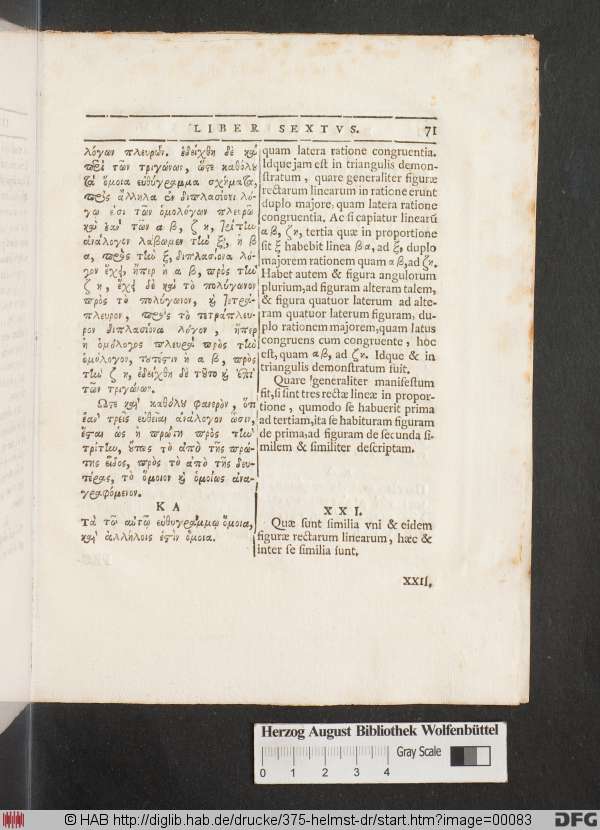 LIBER SEXTVS. 71
λόγων πλευρῶν. ἐδείχθη δὲ καὶ
ἐπὶ τῶν τριγώνων, ὥστε καθόλου
τὰ ὅμοια εὐθύγραμμα σχήματα,
πρὸς ἄλληλα ἐν διπλασίονι λό-
γῳ εἰσι τῶν ὁμολόγων πλευρῶν
καὶ ἐὰν τῶν α β, ζ η, τρίτην
ἀνάλογον λάβωμεν τὴν ξ, ἡ β
α, πρὸς τὴν ξ, διπλασίονα λό-
γον ἔχει, ἤπερ ἡ α β, πρὸς τὴν
ζ η, ἔχει δὲ καὶ τὸ πολύγωνον
πρὸς τὸ πολύγωνον, ἢ τετρά-
πλευρον, πρὸς τὸ τετράπλευ-
ρον διπλασίονα λόγον, ἤπερ
ἡ ὁμόλογος πλευρὰ πρὸς τὴν
ὁμόλογον, τουτέστιν ἡ α β, πρὸς
τὴν ζ η, ἐδείχθη δὲ τοῦτο καὶ ἐπὶ
τῶν τριγώνων.
Ὥστε καὶ καθόλου φανερὸν, ὅτι
ἐὰν τρεῖς εὐθεῖαι ἀνάλογον ὦσιν,
ἔσται ὡς ἡ πρώτη πρὸς τὴν
τρίτην, οὕτως τὸ ἀπὸ τῆς πρώ-
της εἶδος, πρὸς τὸ ἀπὸ τῆς δευ-
τέρας, τὸ ὅμοιον καὶ ὁμοίως ἀνα-
γραφόμενον.
ΚΑ
Τὰ τῷ αὐτῷ εὐθυγράμμῳ ὅμοια,
καὶ ἀλλήλοις ἐστὶν ὅμοια.
quam latera ratione congruentia.
Idque jam est in triangulis demon-
stratum, quare generaliter figuræ
rectarum linearum in ratione erunt
duplo majore, quam latera ratione
congruentia. Ac si capiatur linearū
αβ, ζη, tertia quæ in proportione
sit ξ habebit linea βα, ad ξ, duplo
majorem rationem quam αβ, ad ζη.
Habet autem & figura angulorum
plurium, ad figuram alteram talem,
& figura quatuor laterum ad alte-
ram quatuor laterum figuram, du-
plo rationem majorem, quam latus
congruens cum congruente, hoc
est, quam αβ, ad ζη. Idque & in
triangulis demonstratum fuit.
Quare generaliter manifestum
fit, si sint tres rectæ lineæ in propor-
tione, qumodo se habuerit prima
ad tertiam, ita se habituram figuram
de prima, ad figuram de secunda si-
milem & similiter descriptam.
XXI.
Quæ sunt similia vni & eidem
figuræ rectarum linearum, hæc &
inter se similia sunt,
XXII.
Herzog August Bibliothek Wolfenbüttel
Gray Scale
0 1 2 3 4
© HAB http://diglib.hab.de/drucke/375-helmst-dr/start.htm?image=00083
DFG